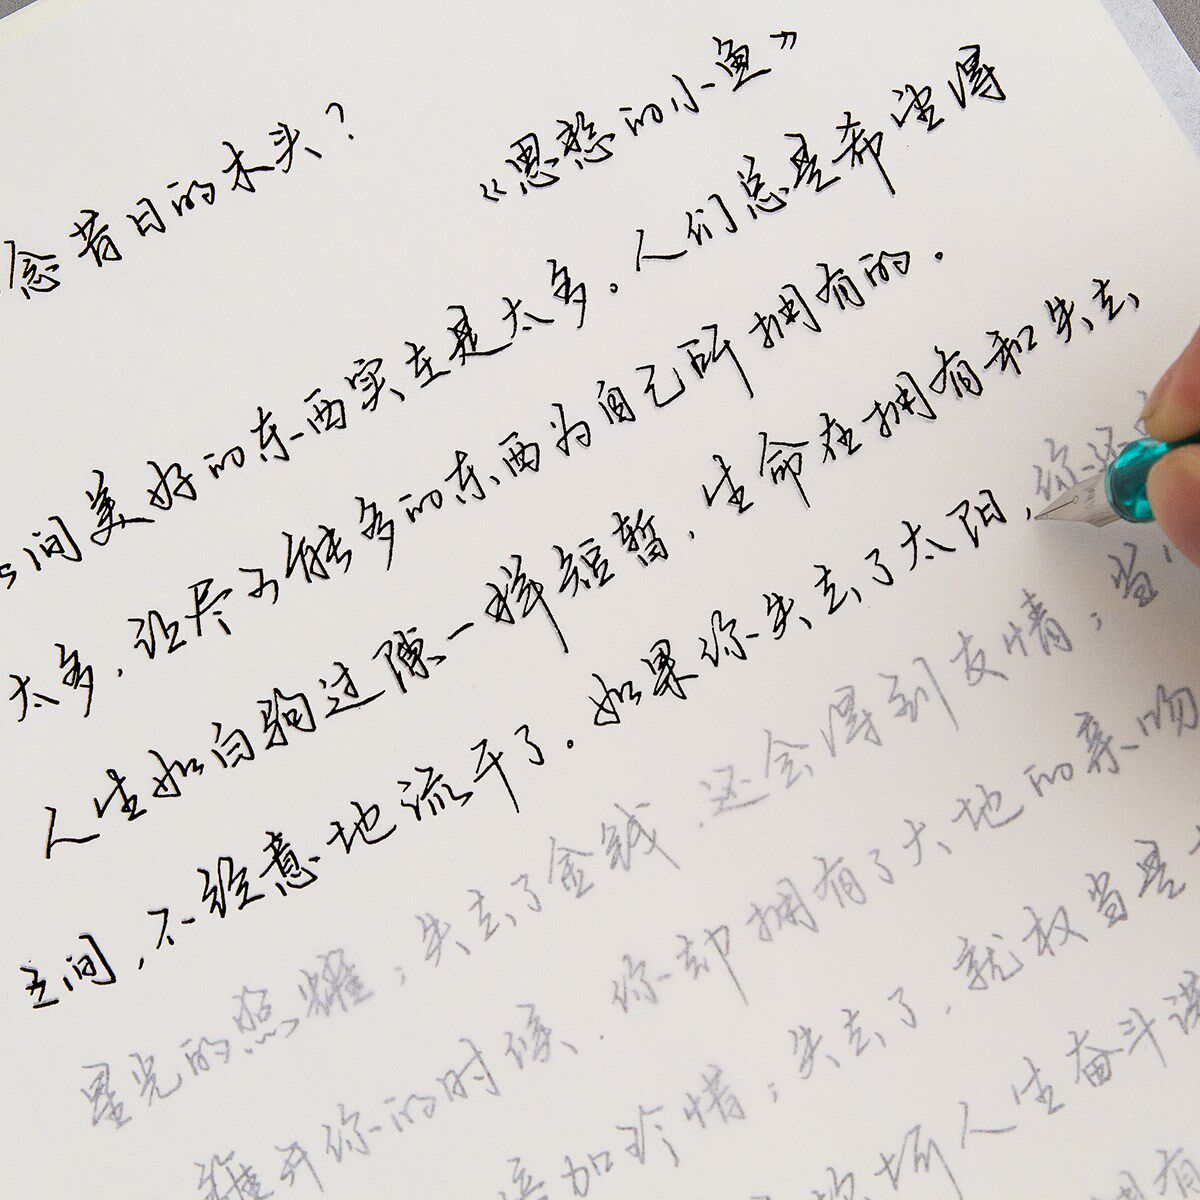 念昔日的木头?
的小鱼》
间美好的东西实在是太多。人们总是希望得
太多,让尽可能多的东西为自己所拥有的.
人生如白驹过隙一样短暂,生命在拥有和失去
之间,不经意地流干了。如果你失去了太阳,你还
星光的照耀;失去了金钱,还会得到友情;当
离开你的时候,你却拥有了大地的亲吻
倍加珍惜;失去了,就权当是
场人生奋斗
拥有